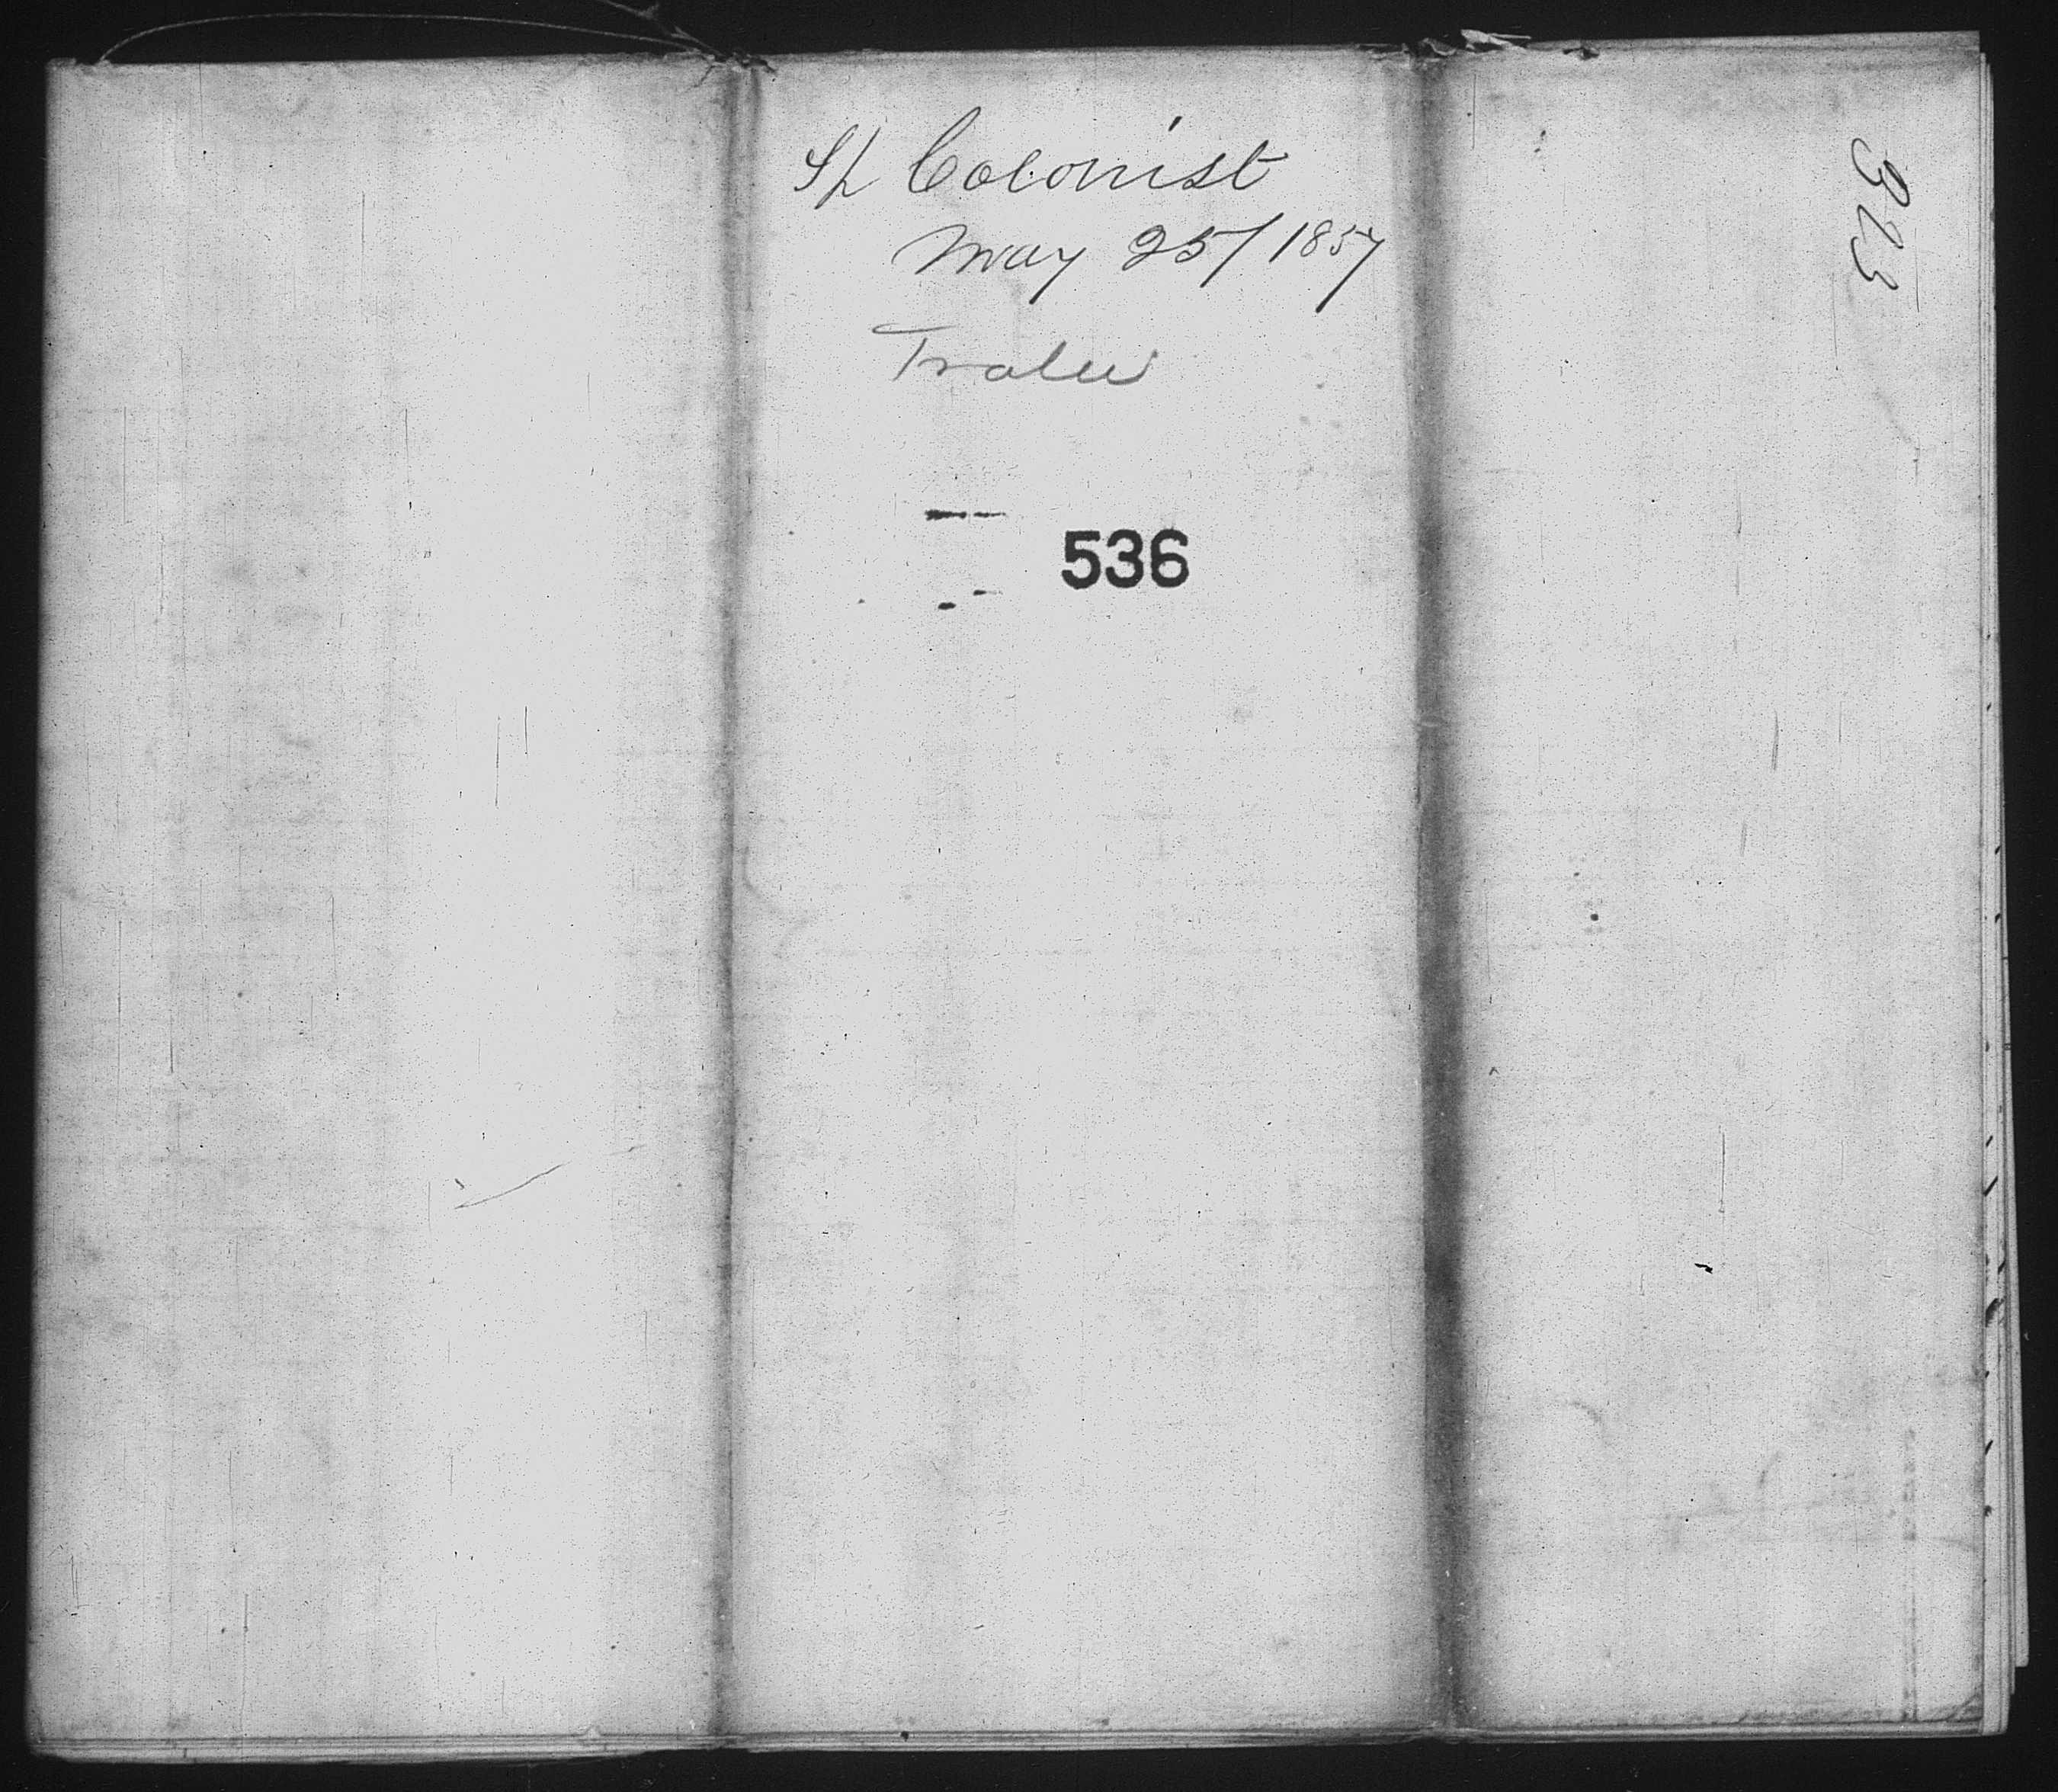 Sh Colonist
May 25/1857
Tralee
536
323